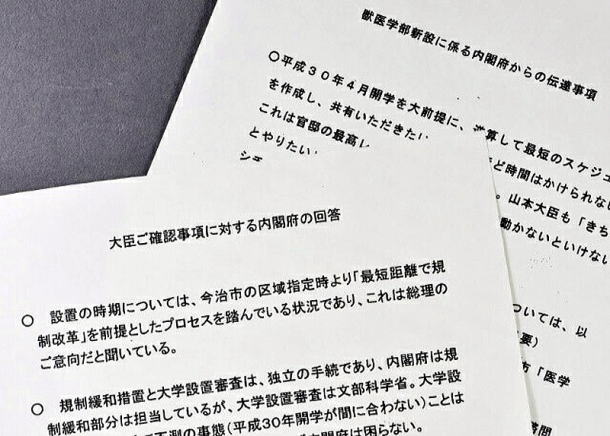 獣医学部新設に係る内閣府からの伝達事項
○平成30年4月開学を大前提に、逆算して最短のスケジュ
を作成し、共有いただきたい
これは官邸の最高レ
とやりたい
ど時間はかけられない
。山本大臣も「きち
動かないといけない
ついては、以
要)
市「医学
大臣ご確認事項に対する内閣府の回答
○ 設置の時期については、今治市の区域指定時より「最短距離で規
制改革」を前提としたプロセスを踏んでいる状況であり、これは総理の
ご意向だと聞いている。
○ 規制緩和措置と大学設置審査は、独立の手続であり、内閣府は規
制緩和部分は担当しているが、大学設置審査は文部科学省。大学設
不測の事態(平成30年開学が間に合わない)ことは
内閣府は困らない。